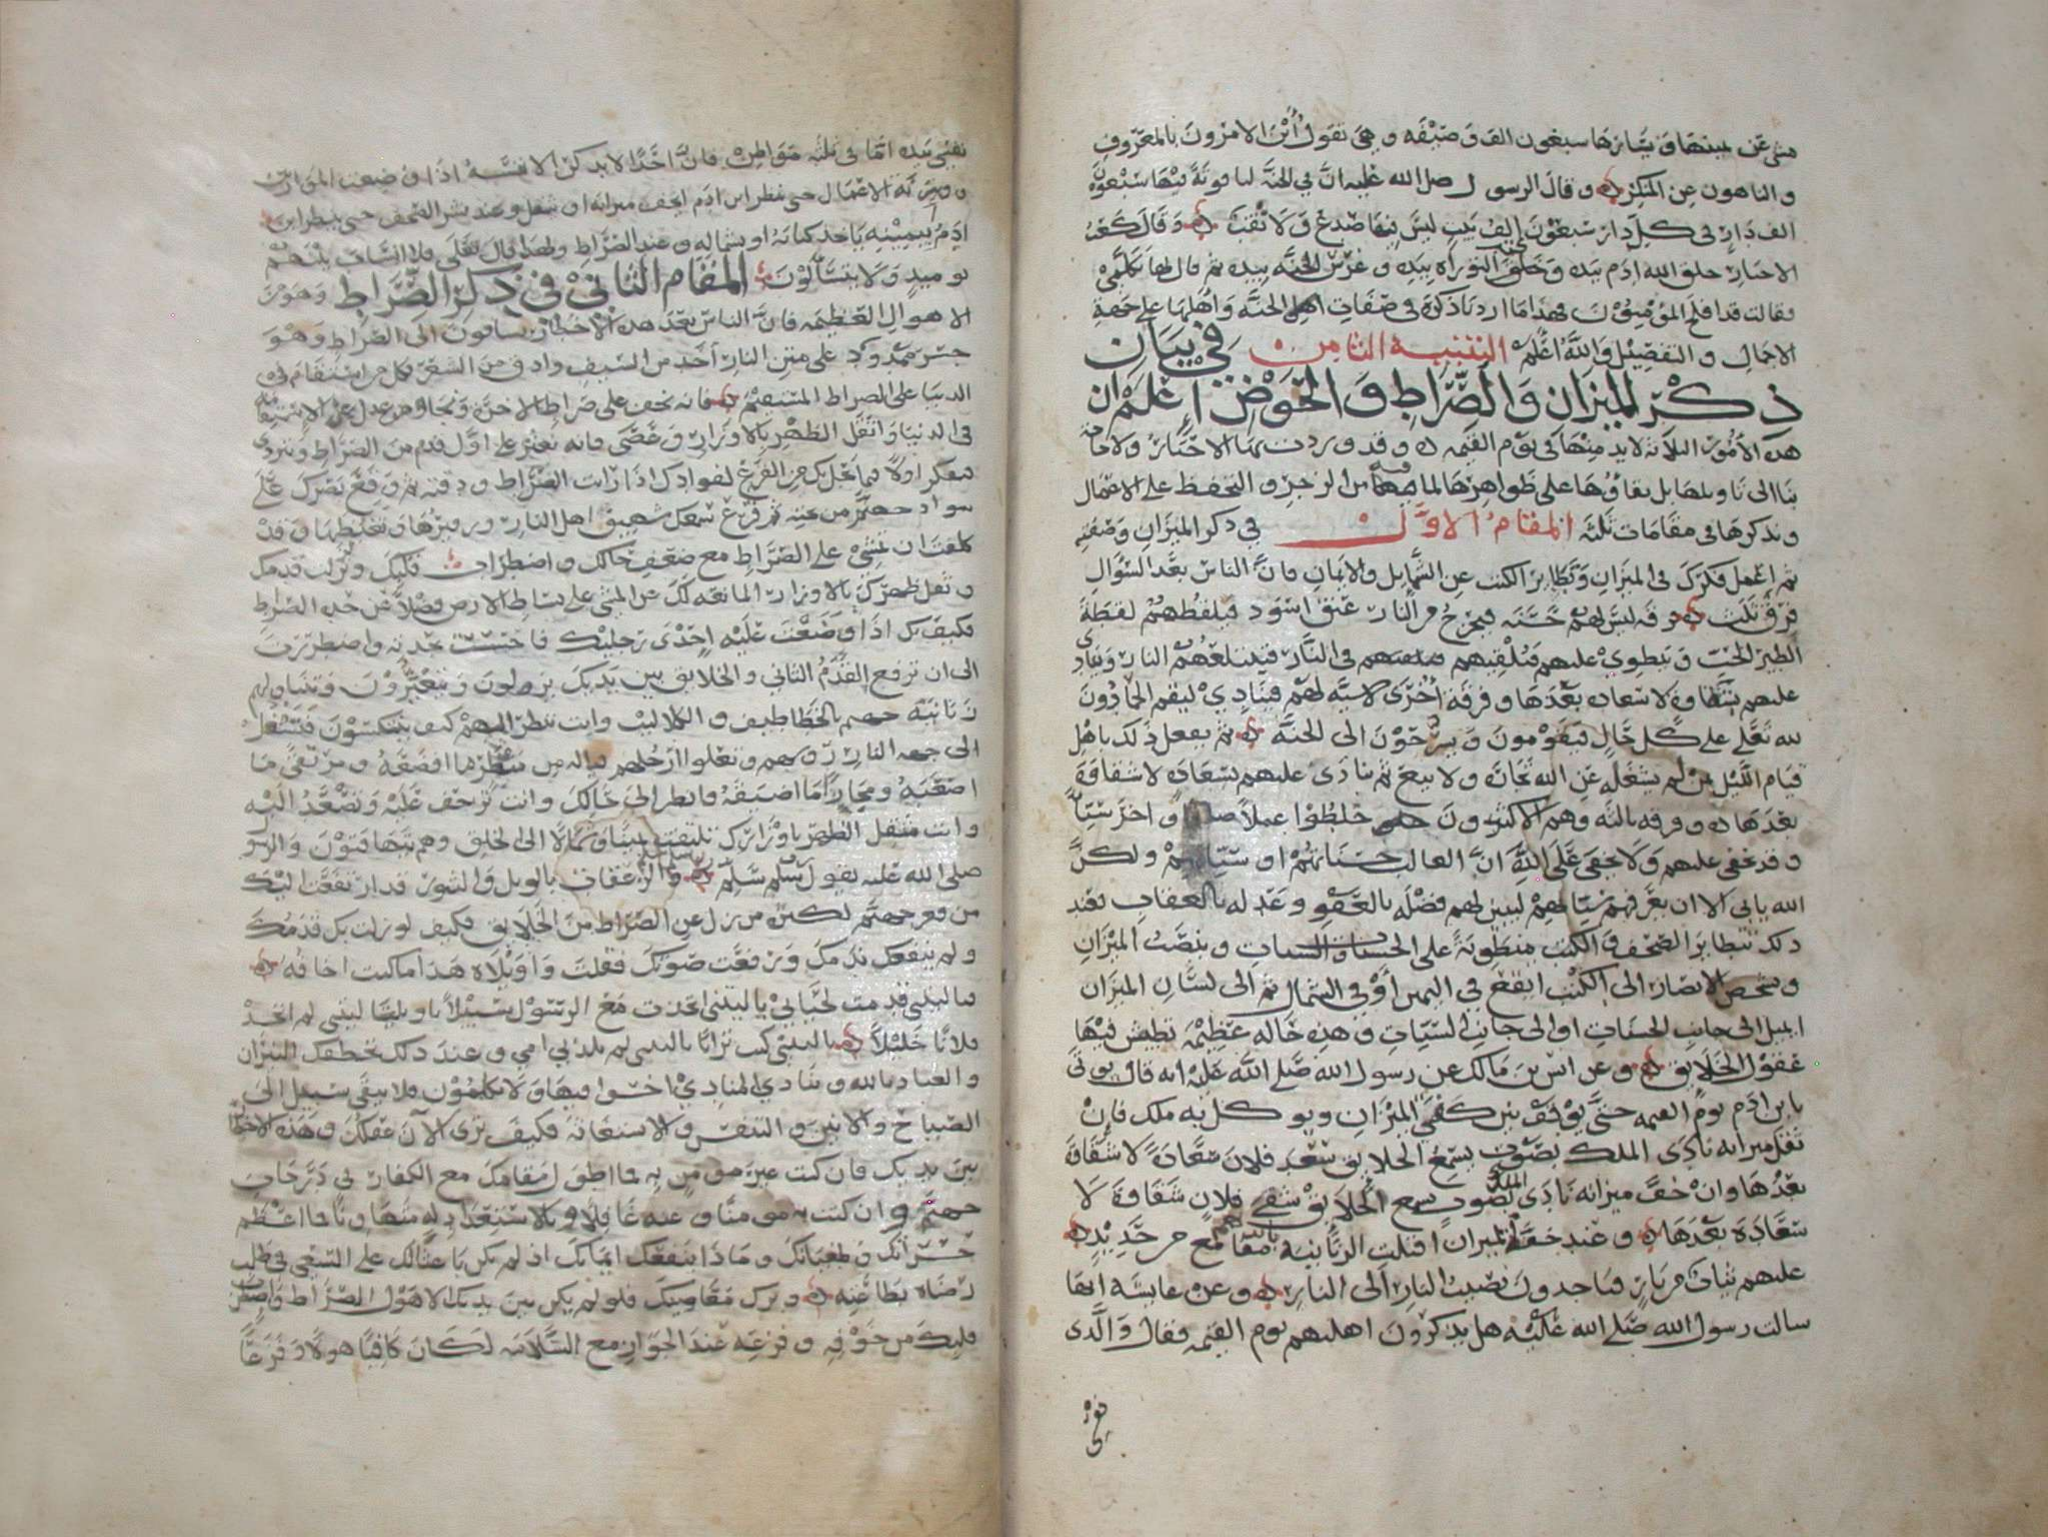 مشى عن يمينها ويسارها سبعون الف وصيفه وهي تقول اين الامرون بالمعروف
والناهون عن المنكر ه وقال الرسول صلى الله عليه ان في الجنة لياقوتة فيها سبعون
الف دار في كل دار سبعون الف بيت ليس فيها صدع ولا ثقب ه وقال كعب
الاحبار خلق الله ادم بيده وخلق التوراه بيده وغرس الجنه بيده ثم قال لها تكلمي
فقالت قد افلح المؤمنون فهذا ما اردنا ذكره في صفات اهل الجنة واهلها على جهة
الاجمال والتفصيل والله اعلم التنبيه الثامن في بيان
ذكر الميزان والصراط والحوض اعلم ان
هذه الأمور الثلاثه لابد منها في يوم القيمه ه وقد وردت بها الاخبار ولا حاجة
بنا الى تاويلها بل بقاؤها على ظواهرها لما فيها من الزجر والتحفظ على الاعمال
ونذكرها في مقامات ثلثه المقام الاول في ذكر الميزان وصفته
ثم اعمل فكرك في الميزان وتطاير الكتب عن الشمايل والايمان فان الناس بعد السؤال
فرق ثلث ه فرقه ليس لهم حسنه فيخرج من النار عنق اسود فيلقطهم لقطة
الطير الحب وينطوي عليهم فيلقيهم في النار فتبتلعهم النار وينادى
عليهم شقاوة لا سعاده بعدها وفرقة أخرى لا سيئه لهم فينادي ليقم الحمادون
لله تعلى على كل حال فيقومون ويسرحون الى الجنة ه ثم يفعل ذلك باهل
قيام الليل ثم بمن لم يشغله عن الله تجارة ولا بيع ثم ينادى عليهم بسعادة لا شقاوة
بعدها ه وفرقه ثالثه وهم الاكثرون خلطوا عملا صالحا واخر سيئا
وقد تخفى عليهم ولا يخفى على الله ان الغالب حسناتهم او سيئاتهم ولكن
الله يابى الا ان يعرفهم سيئاتهم ليبين لهم فضله بالعفو وعدله بالعقاب فعند
ذلك تتطاير الصحف والكتب منطوية على الحسنات والسيئات وينصب الميزان
وتشخص الابصار الى الكتب ايقع في اليمين أو في الشمال ثم الى لسان الميزان
ايميل الى جانب الحسنات او الى جانب السيئات وهذه حاله عظيمه تطيش فيها
عقول الخلايق ه وعن انس بن مالك عن رسول الله صلى الله عليه انه قال يوتى
بابن ادم يوم القيمه حتى يوقف بين كفتي الميزان ويوكل به ملك فان
ثقل ميزانه نادى الملك بصوت يسمع الخلايق سعد فلان سعادة لا شقاوة
بعدها وان خف ميزانه نادى الملك بصوت يسمع الخلايق شقي فلان شقاوة لا
سعادة بعدها ه وعند خفة الميران اقبلت الزبانيه بايديهم مقامع من حديد ه
عليهم ثياب من نار فياخذون نصيب النار الى النار ه وعن عايشة انها
سالت رسول الله صلى الله عليه هل يذكرون اهليهم يوم القيمه فقال والذى
نفسي بيده اما في ثلثه مواطن فان احدا لا يذكر الا نفسه اذا وضعت الموازين
ووزنة الاعمال حتى ينظر ابن ادم ايخف ميزانه او يثقل وعند نشر الصحف حتى ينظر ابن
ادم بيمينه ياخذ كتابه او بشماله وعند الصراط ولهذا قال تعلى فلا انساب بينهم
يوميذ ولا يتسآلون المقام الثاني في ذكر الصراط وهو من
الاهوال العظيمه فان الناس بعد هذه الاخطار يساقون الى الصراط وهو
جسر ممدود على متن النار احد من السيف وادق من الشعر فكل من استقام في
الدنيا على الصراط المستقيم ه فانه يخف على صراط الاخرة ونجا ومن عدل عن الاستقامة
في الدنيا واثقل الظهر بالاوزار وعصى فانه تعثر على اول قدم من الصراط وتردى
ففكر اولا فيما يحل بك من الفزع لفوادك اذا رايت الصراط ودقته ثم وقع بصرك على
سواد جهنم من تحته ثم قرع سمعك شهيق اهل النار وزفيرها وتغيظها وقد
كلفت ان تمشي على الصراط مع ضعف حالك واضطراب قلبك وتزلزل قدمك
وثقل ظهرك بالاوزار المانعه لك عن المشي على بساط الارض فضلا عن حد الصراط
فكيف بك اذا وضعت عليه احدى رجليك فاحسست بحدته واضطررت
الى ان ترفع القدم الثاني والخلايق بين يديك يزلون ويتعثرون وتتناولهم
زبانيه جهنم بالخطاطيف والكلاليب وانت تنظر اليهم كيف يتنكسون فتسفل
الى جهه النار رؤوسهم وتعلوا ارجلهم فياله من منظر ما افضعه ومرتقى ما
اصعبه ومجاز ما اضيقه فانظر الى حالك وانت تزحف عليه وتصعد اليه
وانت مثقل الظهر باوزارك تلتفت يمينا وشمالا الى الخلق وهم يتهافتون والرسول
صلى الله عليه يقول يا رب سلم سلم ه والزعقات بالويل والثبور قد ارتفعت اليك
من قعر جهنم لكثرة من زل عن الصراط من الخلايق فكيف لو زلت بك قدمك
ولم ينفعك ندمك ورفعت صوتك فقلت واويلاه هذا ما كنت اخافه ه
فيا ليتني قدمت لحياتي يا ليتني اتخذت مع الرسول سبيلا يا ويلتا ليتني لم اتخذ
فلانا خليلا ه يا ليتني كنت ترابا يا ليتني لم تلدني امي وعند ذلك تخطفك النيران
والعياذ بالله وينادي المنادي اخسوا فيها ولا تكلمون فلا يبقى سبيل الى
الصياح والانين والتنفس والاستغاثة فكيف ترى الآن عقلك وهذه الاخطار
بين يديك فان كنت غير مومن به فما اطول مقامك مع الكفار في دركات
جهنم وان كنت به مومنا وعنه غافلا وبالاستعداد له متهاونا فما اعظم
خسرانك وطغيانك وماذا ينفعك ايمانك اذ لم يكن باعثا لك على السعي في طلب
رضاه بطاعته ه وترك معاصيك فلو لم يكن بين يديك الا هول الصراط واضطراب
قلبك من خوفه وفزعه عند الجواز مع السلامه لكان كافيا هولا وفزعا